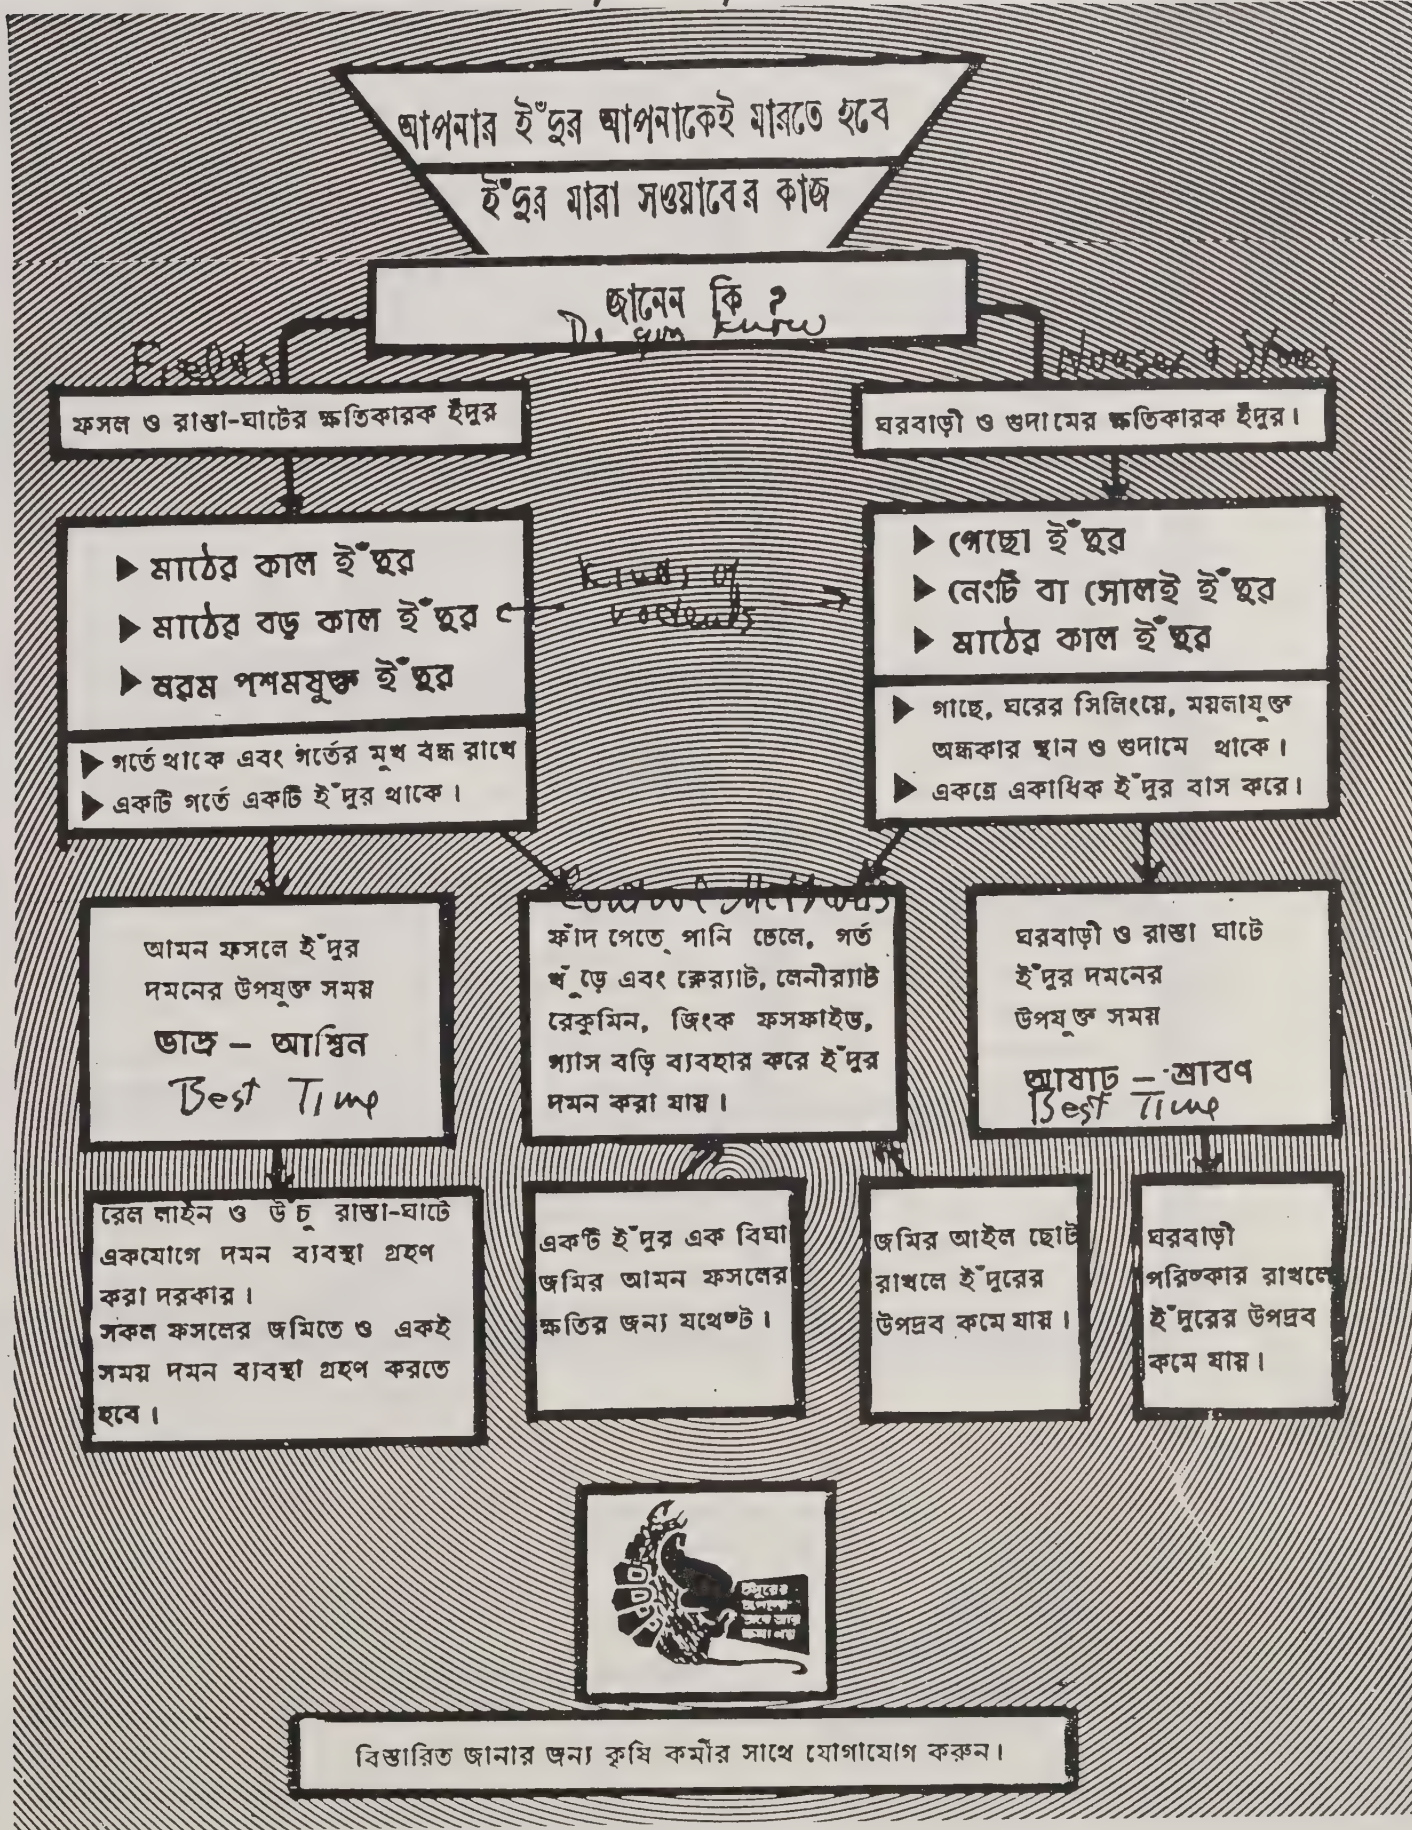 আপনার ইঁদুর আপনাকেই মারতে হবে
ইঁদুর মারা সওয়াবের কাজ
জানেন কি ?
Do you know
Fields
Houses & Stores
ফসল ও রাস্তা-ঘাটের ক্ষতিকারক ইঁদুর
ঘরবাড়ী ও গুদামের ক্ষতিকারক ইঁদুর।
মাঠের কাল ইঁদুর
মাঠের বড় কাল ইঁদুর
নরম পশমযুক্ত ইঁদুর
গর্তে থাকে এবং গর্তের মুখ বন্ধ রাখে
একটি গর্তে একটি ইঁদুর থাকে।
Kinds of
rodents
গেছো ইঁদুর
নেংটি বা সোলই ইঁদুর
মাঠের কাল ইঁদুর
গাছে, ঘরের সিলিংয়ে, ময়লাযুক্ত
অন্ধকার স্থান ও গুদামে থাকে।
একত্রে একাধিক ইঁদুর বাস করে।
আমন ফসলে ইঁদুর
দমনের উপযুক্ত সময়
ভাদ্র – আশ্বিন
Best Time
Control Methods
ফাঁদ পেতে পানি ঢেলে, গর্ত
খুঁড়ে এবং ক্লের‍্যাট, লেনীর‍্যাট
রেকুমিন, জিংক ফসফাইড,
গ্যাস বড়ি ব্যবহার করে ইঁদুর
দমন করা যায়।
ঘরবাড়ী ও রাস্তা ঘাটে
ইঁদুর দমনের
উপযুক্ত সময়
আষাঢ় – শ্রাবণ
Best Time
রেল লাইন ও উঁচু রাস্তা-ঘাটে
একযোগে দমন ব্যবস্থা গ্রহণ
করা দরকার।
সকল ফসলের জমিতে ও একই
সময় দমন ব্যবস্থা গ্রহণ করতে
হবে।
একটি ইঁদুর এক বিঘা
জমির আমন ফসলের
ক্ষতির জন্য যথেষ্ট।
জমির আইল ছোট
রাখলে ইঁদুরের
উপদ্রব কমে যায়।
ঘরবাড়ী
পরিষ্কার রাখলে
ইঁদুরের উপদ্রব
কমে যায়।
ইঁদুরের
বিস্তারিত জানার জন্য কৃষি কর্মীর সাথে যোগাযোগ করুন।